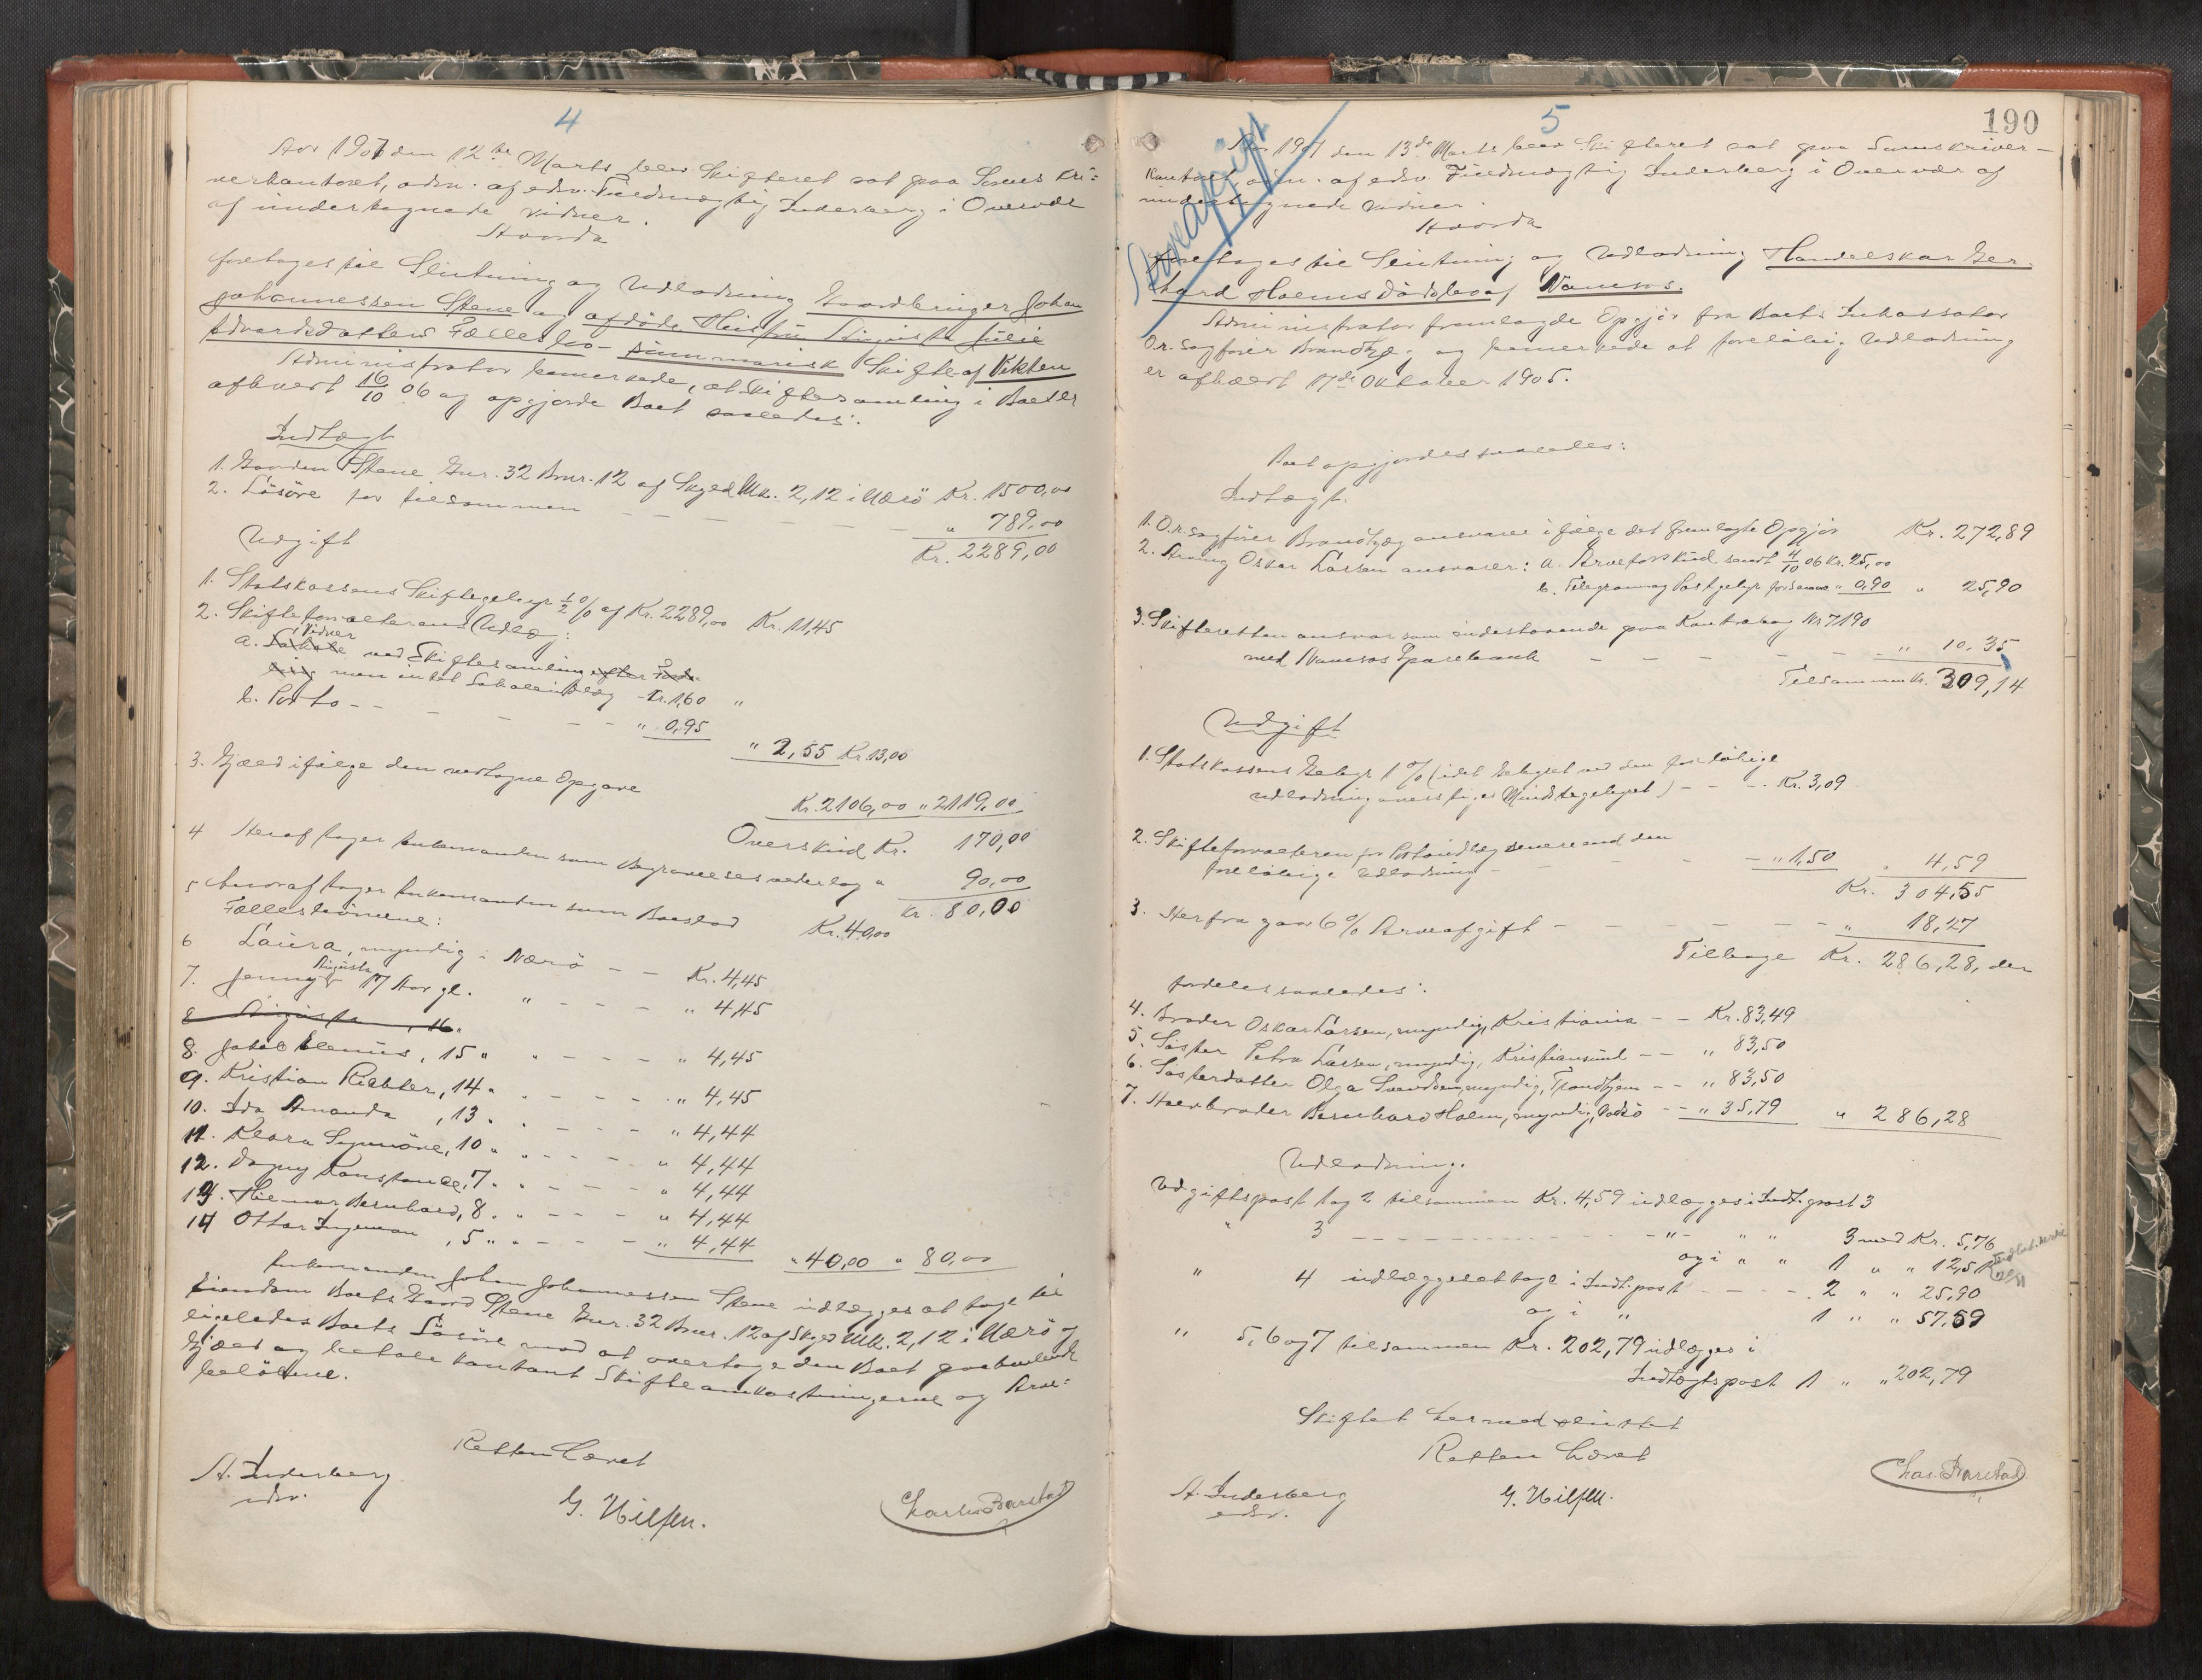 4
Aar 1907 den 12te Marts blev Skifteret sat paa Sorenskri=
verkontoret, adm. af edsv. Fuldmægtig Inderberg i Overvær
af undertegnede Vidner.
Hvorda
foretoges til Slutning og Udlodning Gaardbruger Johan
Johannessen Stene og afdöde Hustru Julie
Edvardsdatters Fællesbo - summarisk Skifte af Vikten
Administrator bemerkede, at Skiftesamling i Boet er
afholdt 16/10 06 og opgjorde Boet saaledes:
Indtægt
1. Gaarden Stene Gnr. 32 Bnr. 12 af Skyld Mk. 2,12 i Nærö Kr. 1500,00
2. Lösöre for tilsammen — — — — — — " 789,00
Kr. 2289,00
Udgift
1. Statskassens Skiftegebyr 1/2 % af Kr. 2289,00 Kr. 11,45
2. Skifteforvalterens Udlæg:
Vidner
a. ved Skiftesamling efter
men intet Lokaleudlæg Kr. 1,60 "
b. Porto - - — — — — " 0,95
" 2,55 Kr. 13,00
3. Gjæld ifölge den vedtagne Opgave
Kr. 2106,00 " 2119,00
Overskud Kr. 170,00
4 Heraf tager Enkemanden som Begravelsesvederlag " 90,00
Kr. 80,00
5 hvoraf tager Enkemanden som Boeslod Kr. 40,00
Fællesbörnene:
6 Laura, myndig i Nærö — — Kr. 4,45
Augusta
7. Jenny 17 Aar gl. " — — — " 4,45
8 Augusta, 16 "
8. Jakob , 15 " " — — — " 4,45
9. Kristian Rikter, 14 " " — — — " 4,45
10. Ida Amanda , 13 " " — — — " 4,44
11. Klara Synnöve, 10 " " — — — " 4,44
12. Dagny Konstance, 7 " " — — — " 4,44
13. Hilmar Bernhard, 8 " " — — — " 4,44
14 Ottar Ingeman , 5 " " — — — " 4,44
" 40,00 " 80,00
Enkemanden Johan Johannessen Stene udlægges at tage til
Eiendom Boets Gaard Stene Gnr. 32 Bnr. 12 af Skyld Mk. 2,12 i Nærö og
ligeledes Boets Lösöre mod at overtage den Boet paahvilende
Gjæld og betale kontant Skifteomkostningerne og Arve=
belöbene.
Retten hævet
A. Inderberg
edsv.
G. Nilsen.
Charles Barstad
190
5
Arveafgift
Aar 1907 den 13de Marts blev Skifteret sat paa Sorenskriver-
kontoret, adm. af edsv. Fuldmægtig Inderberg i Overvær af
undertegnede Vidner.
Hvorda
foretoges til Slutning og Udlodning Handelskar Ger-
hard Holms Dödsbo af Namsos.
Administrator fremlagde Opgjör fra Boets Inkassator
O.r.sagförer Brandtzæg og bemerkede at forelöbig Udlodning
er afholdt 17de Oktober 1905.
Boet opgjordes saaledes:
Indtægt.
1. O.r.sagförer Brandtzæg ansvarer ifölge det fremlagte Opgjör Kr. 272,89
2. Arving Oskar Larsen ansvarer: a. Arveforskud sendt 4/10 06 Kr. 25,00
b. Telegram og Postgebyr for samme " 0,90 " 25,90
3. Skifteretten ansvar som indestaaende paa Kontrabog No 7190
med Namsos Sparebank — — — — — " 10,35
Tilsammen Kr. 309,14
Udgift
1. Statskassens Gebyr 1 % (idet Gebyret ved den forelöbige
Udlodning overstiger Mindstegebyret) — — — Kr. 3,09
2. Skifteforvalteren for Portoudlæg senere end den
forelöbige Udlodning — — — — " 1,50 " 4,59
Kr. 304,55
3. Herfra gaar 6 % Arveafgift — — — — — " 18,27
Tilbage Kr. 286,28, der
fordeles saaledes:
4. Broder Oskar Larsen, myndig, Kristiania — — Kr. 83,49
5. Söster Petra Larsen, myndig, Kristiansund — — " 83,50
6. Sösterdatter Olga Svendsen, myndig, Trondhjem — — " 83,50
7. Halvbroder Bernhard Holm, myndig, — — " 35,79 " 286,28
Udlodning.
Udgiftspost 1 og 2 tilsammen Kr. 4,59 udlægges i Indt.post 3
" 3 — — — — — — — " — " " 3 med Kr. 5,76
og i " " 1 " " 12,51
" 4 udlægges at tage i Indt.post — — — 2 " " 25,90
og i " 1 " " 57,59
" 5, 6 og 7 tilsammen Kr. 202,79 udlægges i
Indtægtspost 1 " " 202,79
Skiftet hermed sluttet
Retten hævet
A. Inderberg
edsv.
G. Nilsen.
Chas. Barstad